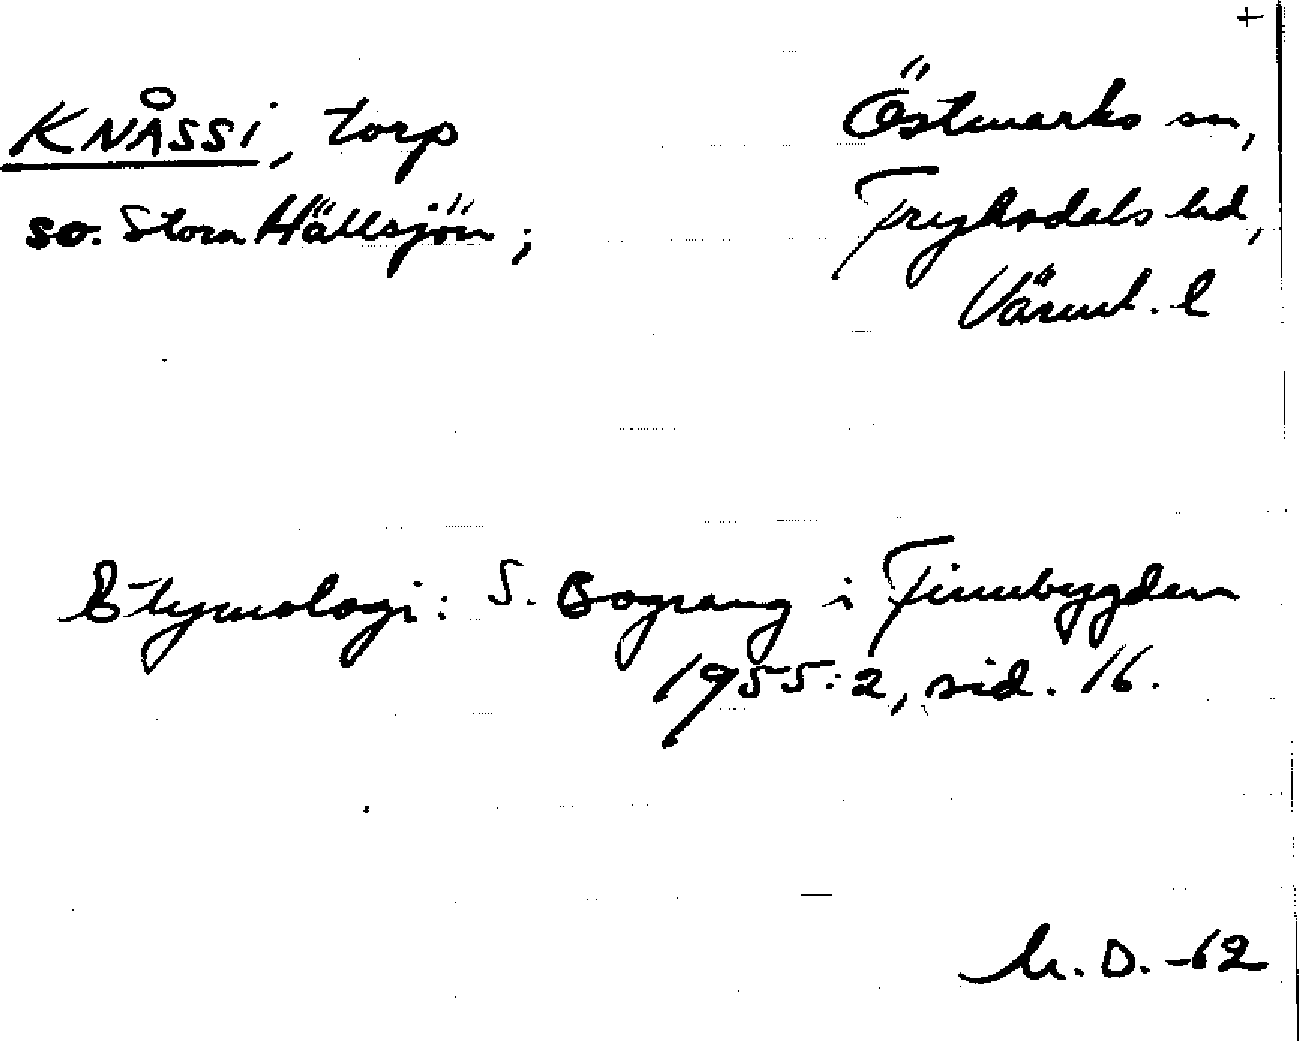 +
KNÅSSI, torp
so. Stora Hällsjön;
Östmarks sn,
Fryksdals hd,
Värml. l
Etymologi: S. Bograng i Finnbygden
1955:2, sid. 16.
M. D. -62